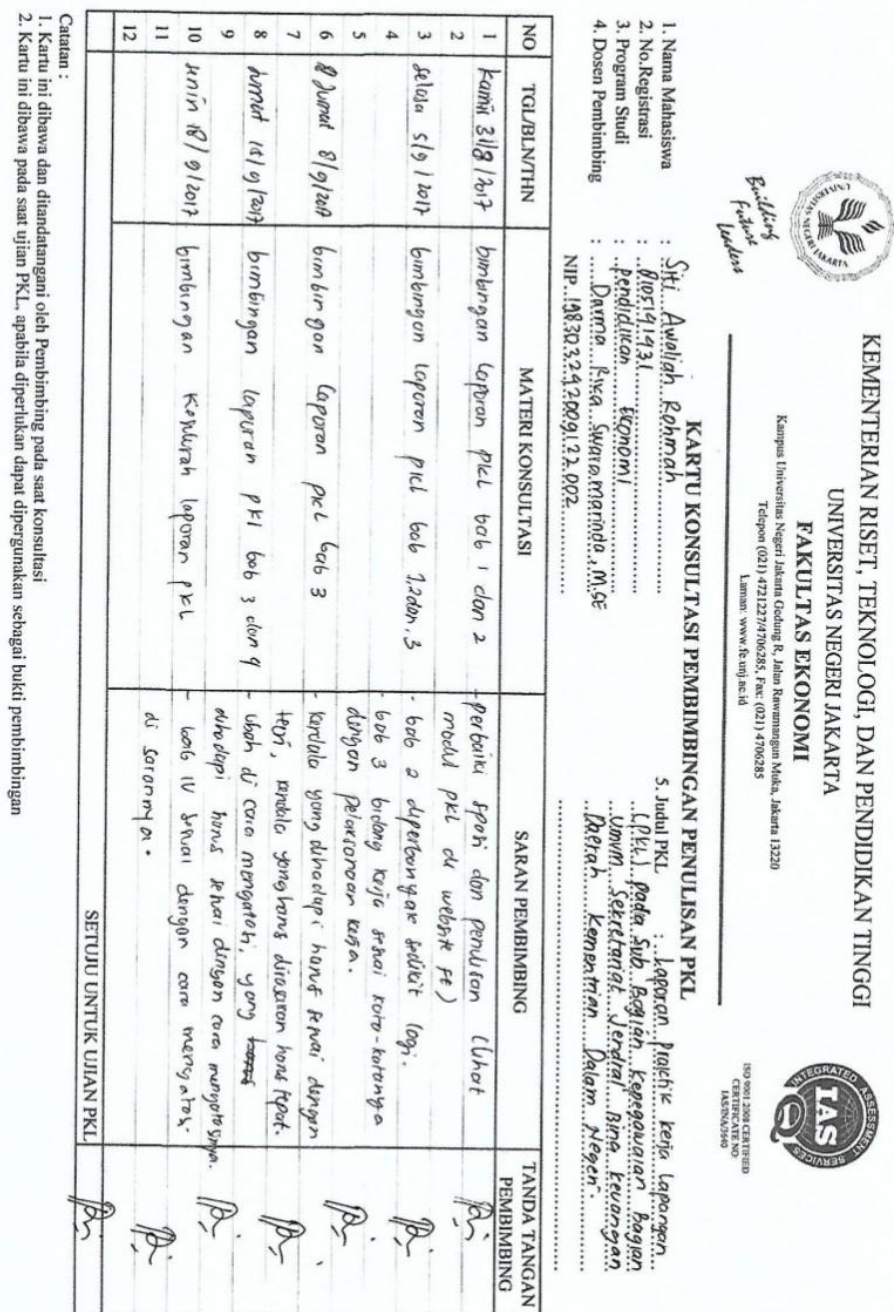 KEMENTERIAN RISET, TEKNOLOGI, DAN PENDIDIKAN TINGGI
UNIVERSITAS NEGERI JAKARTA
FAKULTAS EKONOMI
Kampus Universitas Negeri Jakarta Gedung R, Jalan Rawamangun Muka, Jakarta 13220
Telepon (021) 4721227/4706285, Fax: (021) 4706285
Laman: www.fe.unj.ac.id
UNIVERSITAS NEGERI JAKARTA
Building
Future
Leaders
INTEGRATED ASSESSMENT SERVICES
IAS
ISO 9001:2008 CERTIFIED
CERTIFICATE NO:
IAS/INA/3640
KARTU KONSULTASI PEMBIMBINGAN PENULISAN PKL
1. Nama Mahasiswa : Siti Awaliah Rohmah
2. No.Registrasi : 8105141431
3. Program Studi : Pendidikan Ekonomi
4. Dosen Pembimbing : Darma Rika Swaramarinda, M.SE
NIP. 198303242009122002
5. Judul PKL : Laporan Praktik Kerja Lapangan
(PKL) pada Sub Bagian Kepegawaian Bagian
Umum Sekretariat Jendral Bina Keuangan
Daerah Kementrian Dalam Negeri.
NO TGL/BLN/THN MATERI KONSULTASI SARAN PEMBIMBING TANDA TANGAN PEMBIMBING
1 Kamis 31/8/2017 bimbingan laporan pkl bab 1 dan 2 - perbaiki spasi dan penulisan (lihat
2 modul pkl di website FE)
3 selasa 5/9/2017 bimbingan laporan pkl bab 1,2 dan, 3 - bab 2 diperbanyak sedikit lagi.
4 - bab 3 bidang kerja sesuai kata-katanya
5 dengan pelaksanaan kerja.
6 Jumat 8/9/2017 bimbingan laporan pkl bab 3 - kendala yang dihadapi harus sesuai dengan
7 teori, kendala yang harus dirasakan harus tepat.
8 Jumat 15/9/2017 bimbingan laporan pkl bab 3 dan 4 - ubah di cara mengatasi, yang
9 dihadapi harus sesuai dengan cara mengatasinya.
10 senin 18/9/2017 bimbingan keseluruh laporan pkl - bab IV sesuai dengan cara mengatasi
11 di sarannya.
12
SETUJU UNTUK UJIAN PKL
Catatan :
1. Kartu ini dibawa dan ditandatangani oleh Pembimbing pada saat konsultasi
2. Kartu ini dibawa pada saat ujian PKL, apabila diperlukan dapat dipergunakan sebagai bukti pembimbingan